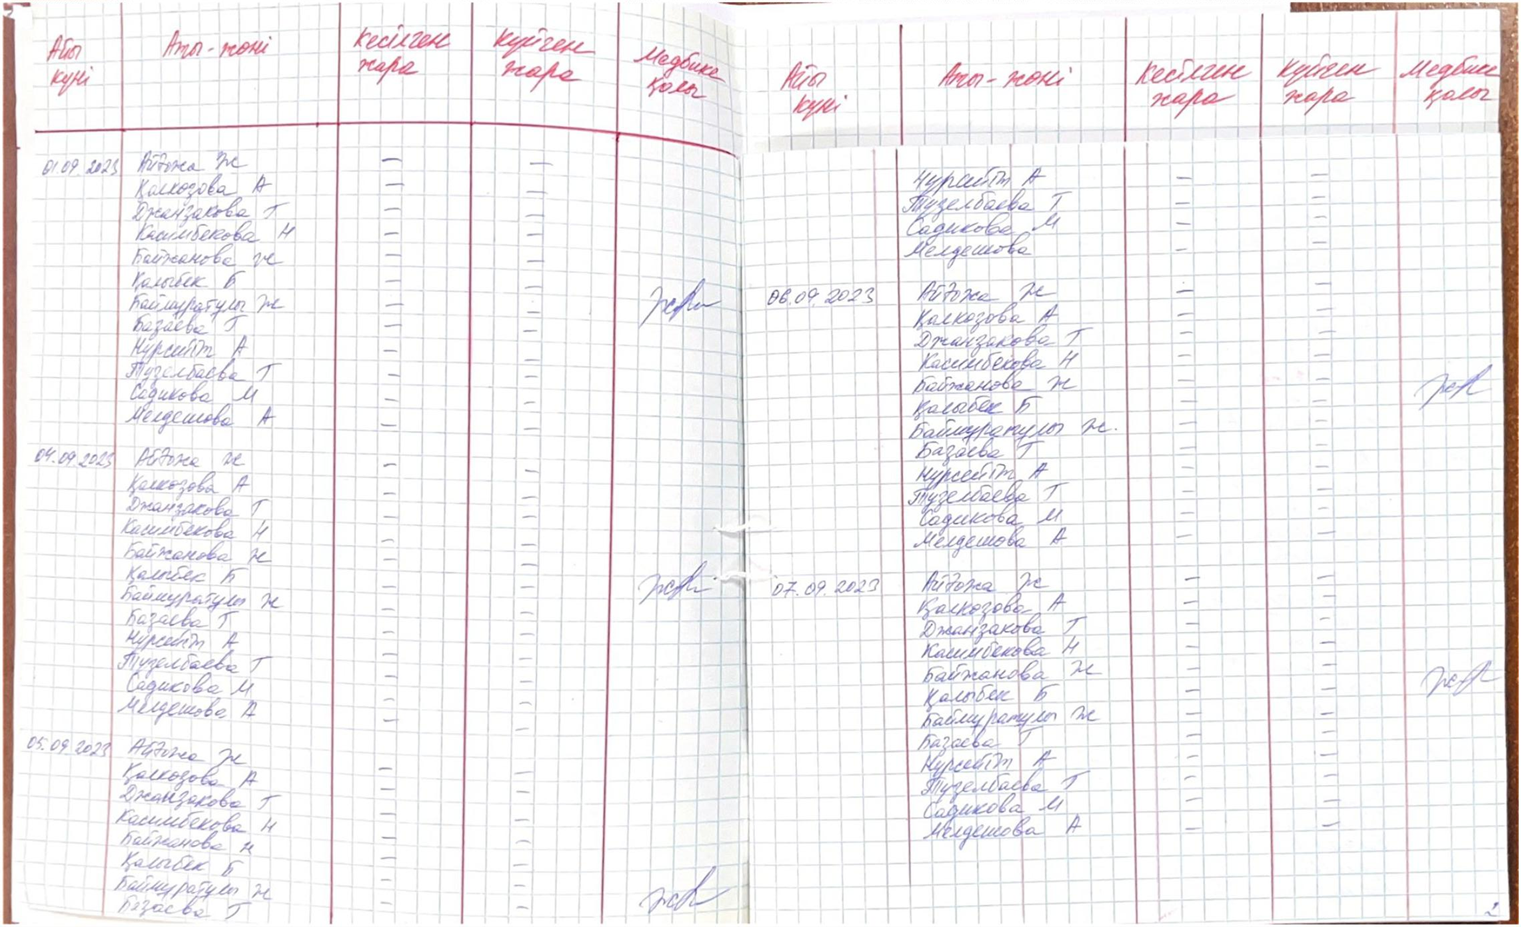 Айы күні Аты-жөні Кесілген жара Күйген жара Медбике қолы
01.09.2023 Айғожа Ж — —
Қалкозова А — —
Джанзакова Т — —
Касимбекова Н — —
Байжанова Ж — —
Қалыбек Б — —
Баймуратұлы Ж — —
Базаева Т — —
Нурсейіт А — —
Тузелбаева Т — —
Садикова М — —
Мелдешова А — —
04.09.2023 Айғожа Ж — —
Қалкозова А — —
Джанзакова Т — —
Касимбекова Н — —
Байжанова Ж — —
Қалыбек Б — —
Баймуратұлы Ж — —
Базаева Т — —
Нурсейіт А — —
Тузелбаева Т — —
Садикова М — —
Мелдешова А — —
05.09.2023 Айғожа Ж — —
Қалкозова А — —
Джанзакова Т — —
Касимбекова Н — —
Байжанова Ж — —
Қалыбек Б — —
Баймуратұлы Ж — —
Базаева Т — —
Айы күні Аты-жөні Кесілген жара Күйген жара Медбике қолы
Нурсейіт А — —
Тузелбаева Т — —
Садикова М — —
Мелдешова — —
06.09.2023 Айғожа Ж — —
Қалкозова А — —
Джанзакова Т — —
Касимбекова Н — —
Байжанова Ж — —
Қалыбек Б — —
Баймуратұлы Ж. — —
Базаева Т — —
Нурсейіт А — —
Тузелбаева Т — —
Садикова М — —
Мелдешова А — —
07.09.2023 Айғожа Ж — —
Қалкозова А — —
Джанзакова Т — —
Касимбекова Н — —
Байжанова Ж — —
Қалыбек Б — —
Баймуратұлы Ж — —
Базаева Т — —
Нурсейіт А — —
Тузелбаева Т — —
Садикова М — —
Мелдешова А — —
2